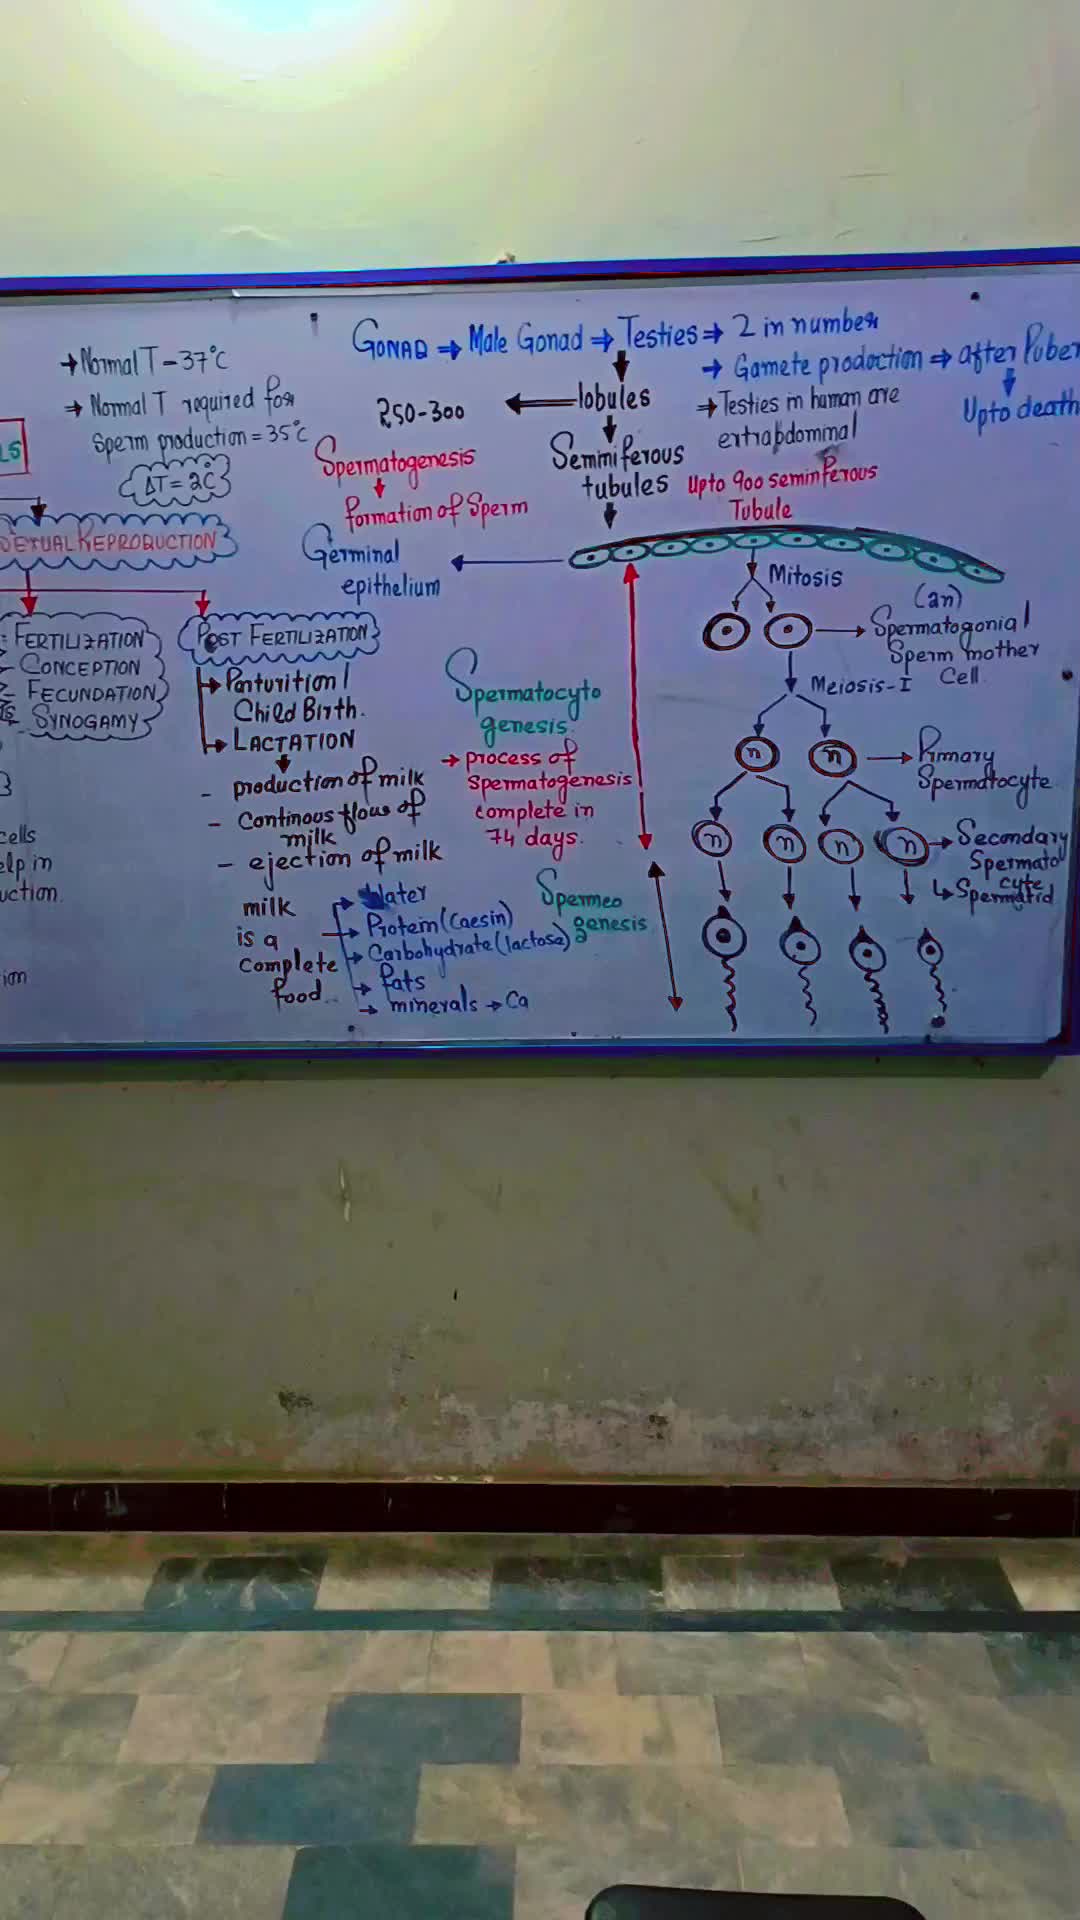 → Normal T = 37°C
→ Normal T required for
Sperm production = 35°C
ΔT = 2°C
LS
SEXUAL REPRODUCTION
FERTILIZATION
CONCEPTION
FECUNDATION
SYNOGAMY
cells
elp in
uction.
ion
POST FERTILIZATION
→ Parturition/
Child Birth.
→ LACTATION
- production of milk
- Continous flous of
milk
- ejection of milk
milk
is a
complete
food..
→ Water
→ Protein (Caesin)
→ Carbohydrate (lactose)
→ fats
→ minerals → Ca
GONAD ⇒ Male Gonad ⇒ Testies ⇒ 2 in number
→ Gamete prodoction ⇒ after Puber
Upto death
→ Testies in human are
extrabdominal
lobules
250-300
Semmiferous
tubules
Upto 900 seminferous
Tubule
Spermatogenesis
formation of Sperm
Germinal
epithelium
Mitosis
(2n)
Spermatogonial
Sperm mother
Cell.
Meiosis-I
n n
Primary
Spermatocyte
n n n n
Secondary
Spermato
cyte
↳ Spermatid
Spermatocyto
genesis.
→ process of
Spermatogenesis
complete in
74 days.
Spermeo
genesis